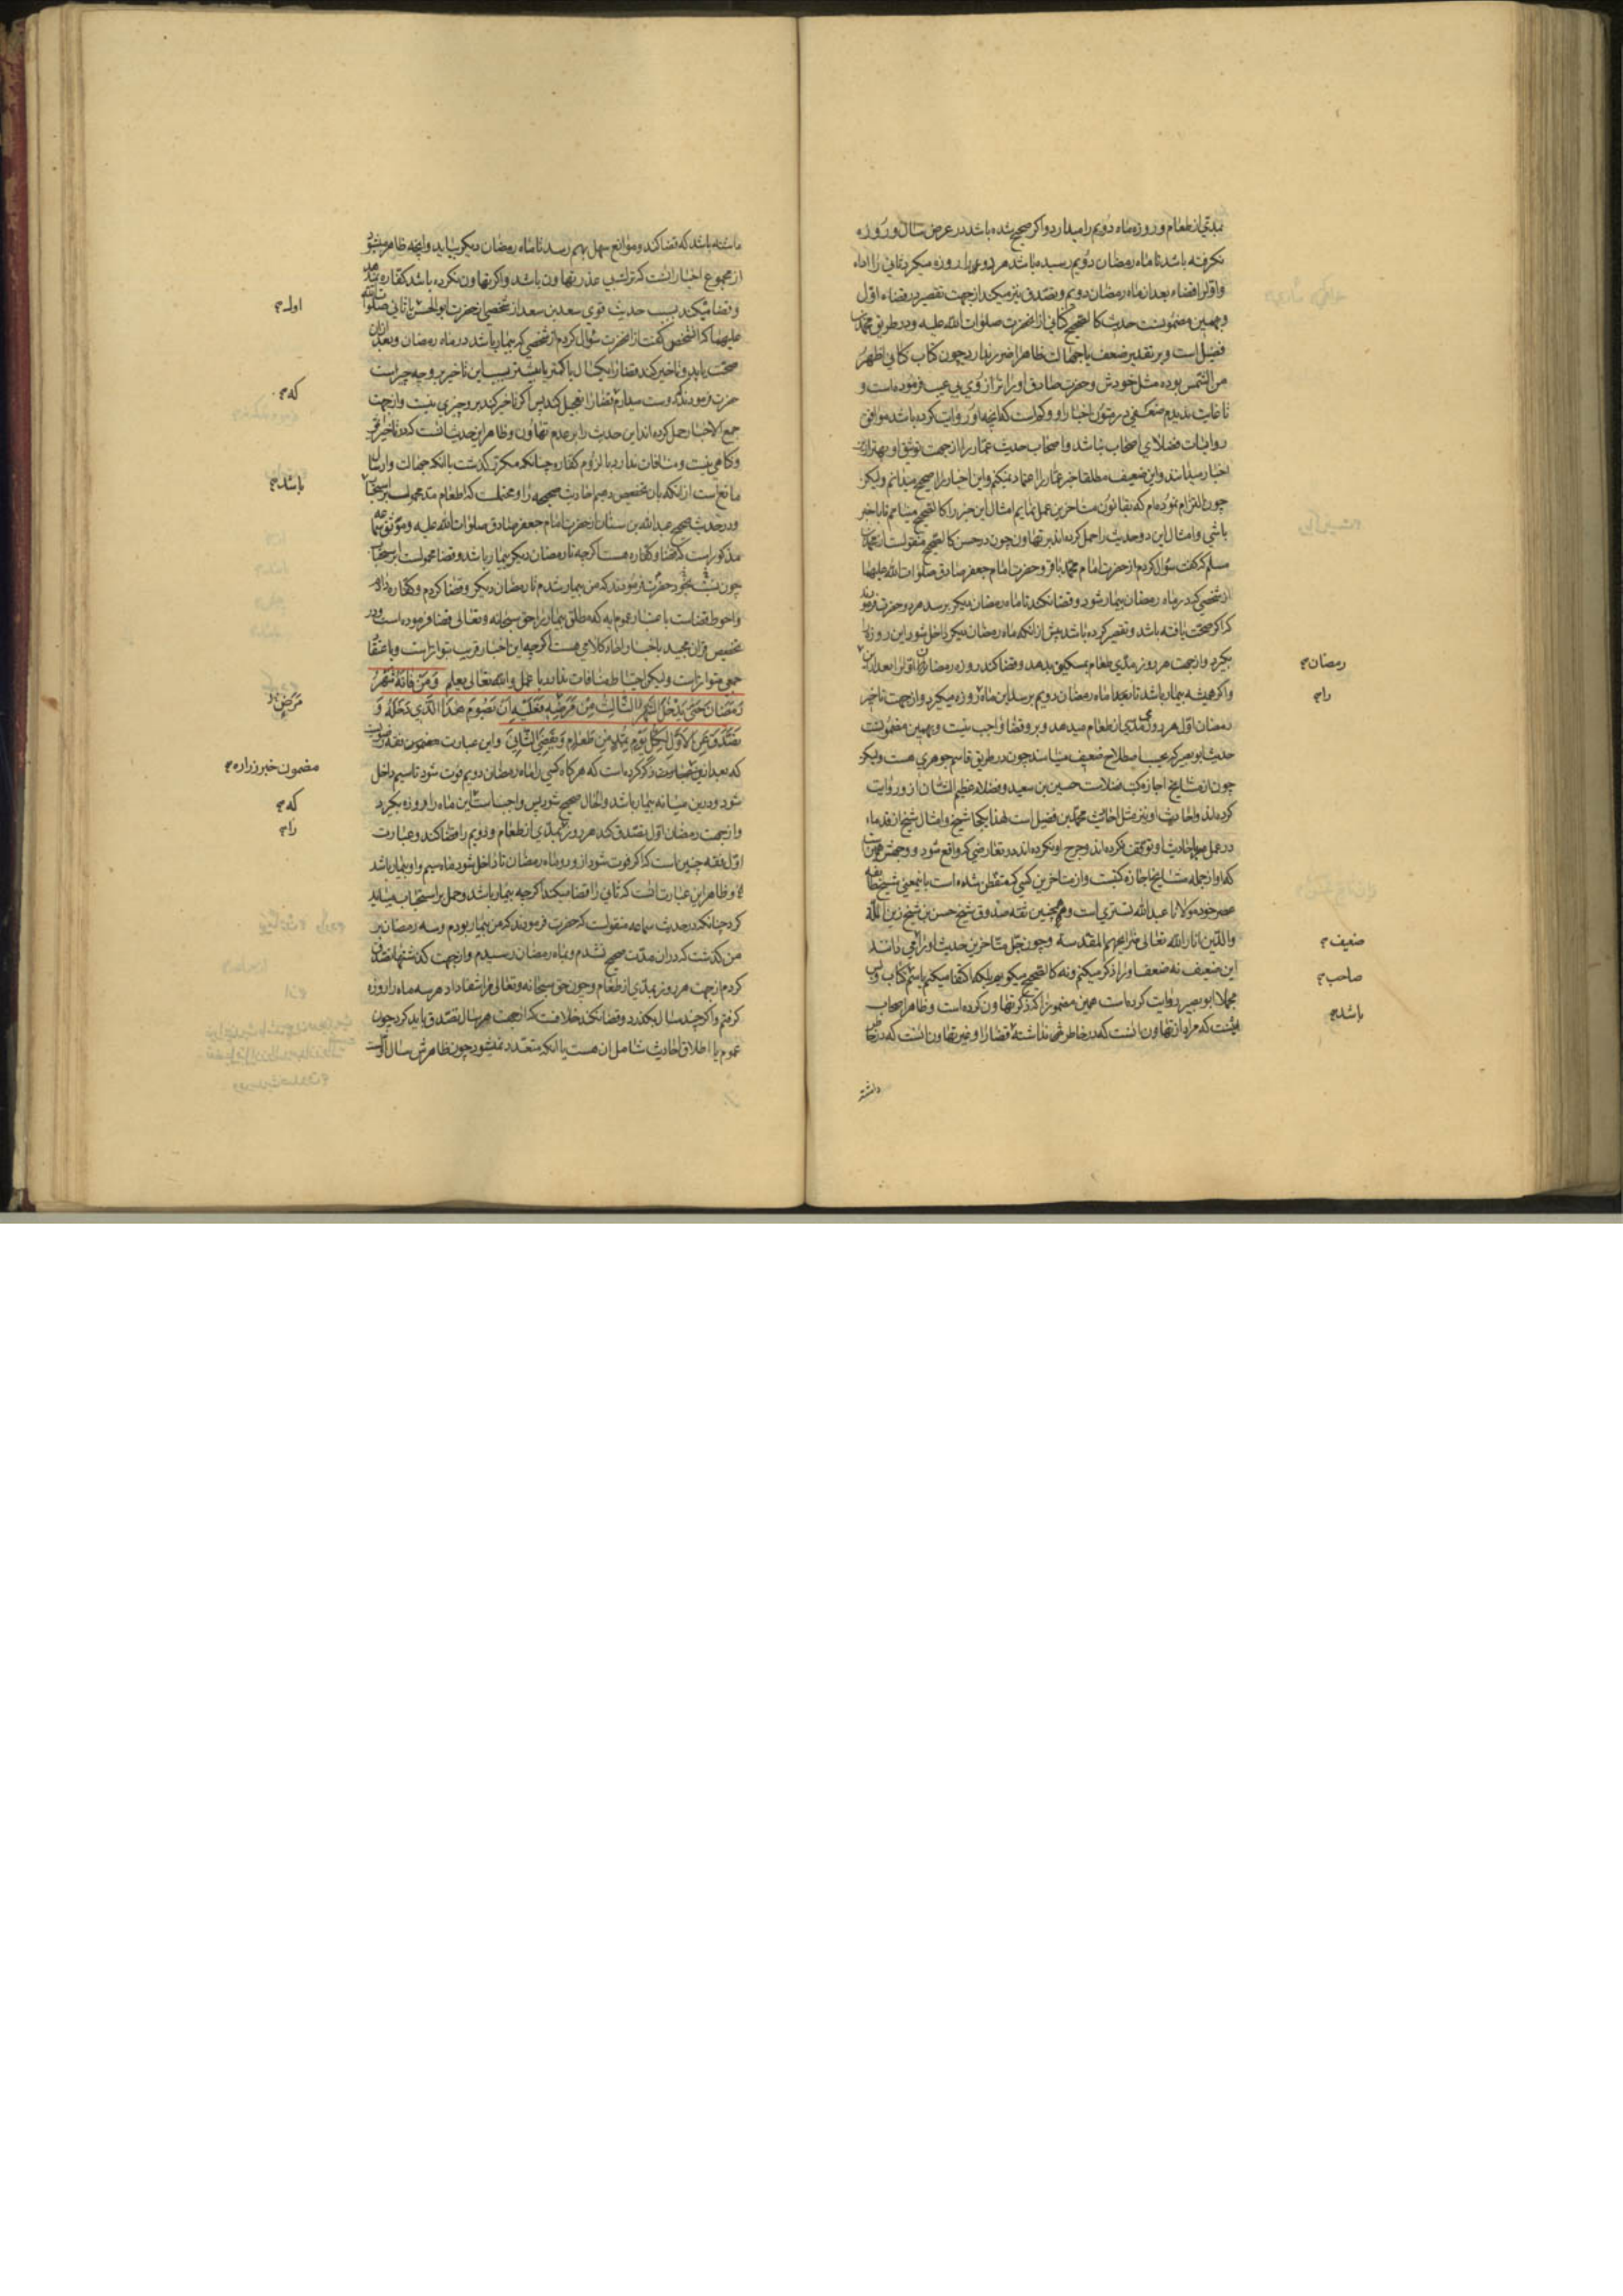 بمدّی از طعام و روزه ماه دویم را میدارد و اگر صحیح شده باشد در عرض سال و روزه
نگرفته باشد تا ماه رمضان دویم رسیده باشد هر دو را روزه میگیرد ثانی را اداء
و اول را قضاء بعد از ماه رمضان دویم و تصدق نیز میکند از جهت تقصیر در قضاء اول
و بهمین مضمونست حدیث کالصحیح کنانی از انحضرت صلوات الله علیه و در طریق محمد بن
فضیل است و بر تقدیر ضعف یا جهالت ظاهرا ضرر ندارد چون کتاب کنانی اظهر
من الشمس بوده مثل خودش و حضرت صادق او را ترازوی بی عیب فرموده است و
تا غایت ندیدم ضعفی در متون اخبار او و کم است که انچه او روایت کرده باشد موافق
روایات فضلای اصحاب نباشد و اصحاب حدیث عمّار را از جهت توثیق او بهتر از این
اخبار میدانند و این ضعیف مطلقا خبر عمّار را اعتماد نمیکنم و این اخبار را صحیح میدانم و لیکن
چون التزام نموده‌ام که بقانون متاخرین عمل نمایم امثال این خبر را کالصحیح مینامم تا با خبر
باشی و امثال این دو حدیث را حمل کرده‌اند بر تهاون چون در حسن کالصحیح منقولست از محمد بن
مسلم که گفت سؤال کردم از حضرت امام محمد باقر و حضرت امام جعفر صادق صلوات الله علیهما
از شخصی که در ماه رمضان بیمار شود و قضا نکند تا ماه رمضان دیگر برسد هر دو حضرت فرمودند
که اگر صحت یافته باشد و تقصیر کرده باشد پیش از انکه ماه رمضان دیگر داخل شود این را روزه
بگیرد و از جهت هر روز مدّی طعام بمسکین بدهد و قضا کند روزه رمضان اول را بعد از این
و اگر همیشه بیمار باشد تا بعد ماه رمضان دویم برسد این ماه را روزه میگیرد و از جهت تاخیر
رمضان اول هر روز مدّی از طعام میدهد و برو قضا واجب نیست و بهمین مضمونست
حدیث ابو بصیر که بحسب اصطلاح ضعیف مینامند چون در طریق قاسم جوهری هست و لیکن
چون از مشایخ اجازه کتب فضلاست حسین بن سعید و فضلاء عظیم الشان از و روایت
کرده‌اند و احادیث او نیز مثل احادیث محمد بن فضیل است لهذا یکجا شیخ و امثال شیخ از قدماء
در عمل باحادیث او توقف نکرده‌اند و جرح او نکرده‌اند در تعارضی که واقع شود و وجهش همین است
که او از جمله مشایخ اجازه کتبست و از متاخرین کسی که متفطن شده است باینمعنی شیخ طائفه
عصر خود مولانا عبد الله تستری است و همچنین ثقه صدوق شیخ حسن بن شیخ زین الملة
والدین انار الله تعالی ضرایحهم المقدسة و چون جلّ متاخرین حدیث او را قوی دانند
این ضعیف نه ضعف او را ذکر میکنم و نه کالصحیح میگویم بلکه اکتفا میکنم باسم کتاب و بس
مجملا ابو بصیر روایت کرده است همین مضمون را که ذکر تهاون کرده است و ظاهر اصحاب
اینست که مراد از تهاون انست که در خاطرش نداشته قضا را و غیر تهاون انست که در خاطر
داشته
رمضان
را
ضعیف
صاحب
باشد
داشته باشد که قضا کند و موانع سهل بهم رسد تا ماه رمضان دیگر بیاید و انچه ظاهر میشود
از مجموع اخبار انست که ترک بی عذر تهاون باشد و اگر تهاون نکرده باشد کفاره میدهد
و قضا میکند بسبب حدیث قوی سعد بن سعد از شخصی از حضرت ابو الحسن ثانی صلوات الله
علیهما که انشخص گفت از انحضرت سؤال کردم از شخصی که بیمار باشد در ماه رمضان و بعد از ان
صحت یابد و تاخیر کند قضا را یکسال یا کمتر یا بیشتر بسبب این تاخیر برو چه چیز است
حضرت فرمودند که دوست میدارم قضا را تعجیل کند پس اگر تاخیر کند برو چیزی نیست و از جهت
جمع الاخبار حمل کرده‌اند این حدیث را بر عدم تهاون و ظاهر این حدیث انست که در تاخیر ضرر
و گناهی نیست و منافات ندارد با لزوم کفاره چنانکه مکرر گذشت با انکه جهالت و ارسال
مانع است از انکه بان تخصیص دهیم احادیث صحیحه را و محتملست که اطعام مد محمول بر استحباب
و در حدیث صحیح عبد الله بن سنان از حضرت امام جعفر صادق صلوات الله علیه و موثق سماعه
مذکور است که قضا و کفاره هست اگر چه تا رمضان دیگر بیمار باشد و قضا محمولست بر استحباب
چون نسبت بخود حضرت فرمودند که من بیمار شدم تا رمضان دیگر و قضا کردم و کفاره دادم
و احوط قضاست باعتبار عموم ایه که مطلق بیمار را حق سبحانه و تعالی قضا فرموده است و در
تخصیص قران مجید باخبار احاد کلامی هست اگر چه این اخبار قریب بتواتر است و باعتقاد
جمعی متواتر است و لیکن احتیاط منافات ندارد با عمل والله تعالی یعلم وَمَنْ فَاتَهُ شَهْرُ
رَمَضَانَ حَتّى يَدْخُلَ الشَّهْرُ الثَّالِثُ مِنْ مَرَضِهِ فَعَلَيْهِ اَنْ يَصُومَ هَذَا الَّذِي دَخَلَهُ وَ
يَتَصَدَّقَ عَنِ الْاَوَّلِ لِكُلِّ يَوْمٍ بِمُدٍّ مِنْ طَعَامٍ وَيَقْضِيَ الثَّانِيَ و این عبارت مضمون فقه رضویست
که بعد از ذکر کرده است که هر گاه کسی را ماه رمضان دویم فوت شود تا سیم داخل
شود و در این میانه بیمار باشد و الحال صحیح شود پس واجب است این ماه را روزه بگیرد
و از جهت رمضان اول تصدق کند هر روز بمدّی از طعام و دویم را قضا کند و عبارت
اول فقه چنین است که اگر فوت شود از و دو ماه رمضان تا داخل شود ماه سیم و او بیمار باشد
و ظاهر این عبارت انست که ثانی را قضا میکند اگر چه بیمار باشد و حمل بر استحباب میباید
کرد چنانکه در حدیث سماعه منقولست که حضرت فرمودند که من بیمار بودم و سه رمضان بر
من گذشت که در ان مدت صحیح نشدم و بماه رمضان رسیدم و از جهت گذشتها تصدق
کردم از جهت هر روز بمدّی از طعام و چون حق سبحانه و تعالی مرا شفا داد هر سه ماه را روزه
گرفتم و اگر چند سال بگذرد و قضا نکند خلافست که از جهت هر سال تصدق باید کرد چون
عموم یا اطلاق احادیث شامل ان هست یا انکه متعدد نمیشود چون ظاهرش سال اولست
اول
که
باشد
مَرَضٍ
مضمون خبر زراره
که
را